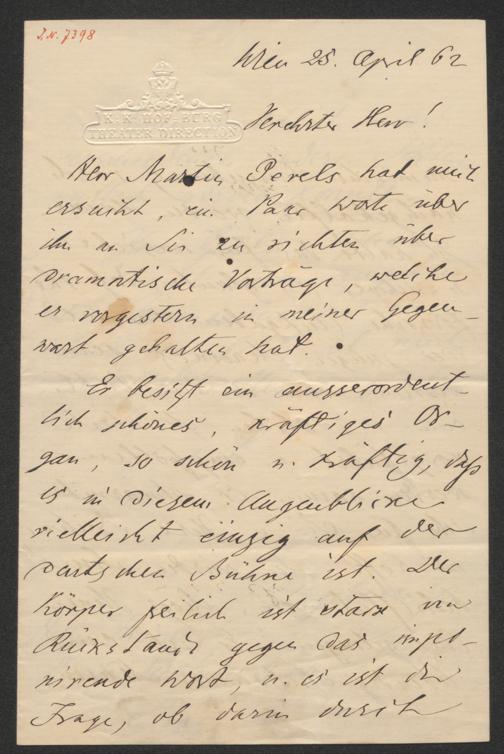 J.N. 7398
Wien 25. April 62
K. K. HOF-BURG
THEATER DIRECTION
Verehrter Herr!
Herr Martin Perels hat mich
ersucht, ein Paar worte über
ihn an Sie zu richten über
dramatische Vorträge, welche
er vorgestern in meiner Gegen-
wart gehalten hat.
Er besitzt ein ausserordent-
lich schönes, kräftiges Or-
gan, so schön u. kräftig, daß
es in diesem Augenblicke
vielleicht einzig auf der
deutschen Bühne ist. Der
Körper freilich ist stark im
Rückstande gegen das impo-
nirende Wort, u. es ist die
Frage, ob darin durch